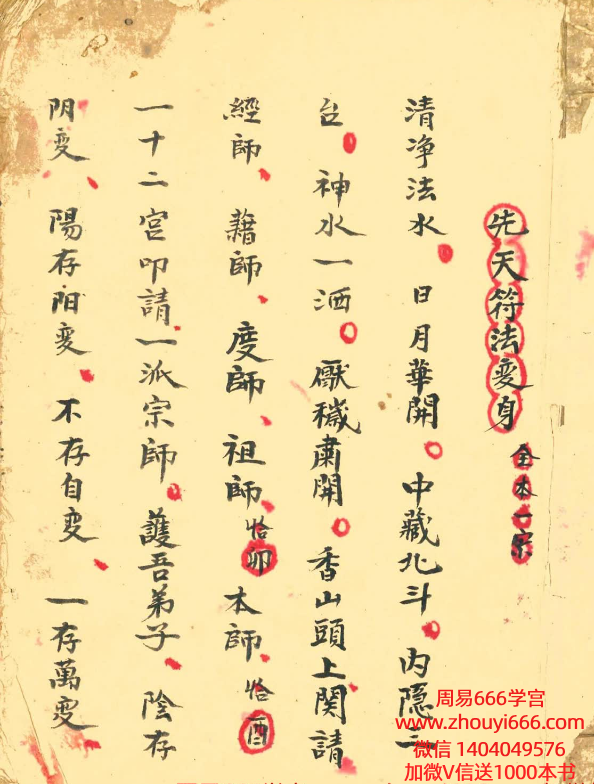 先天符法变身 全本一宗
清净法水 日月華開 中藏北斗 内隐三
台 神水一洒 厭穢肅開 香山頭上関請
經師 藉師 度師 祖師 恰卯 本師 恰酉
一十二宫叩請 一派宗師 護吾弟子 陰存
阴变 陽存阳变 不存自变 一存萬变
周易666学宫
www.zhouyi666.com
微信 1404049576
加微V信送1000本书